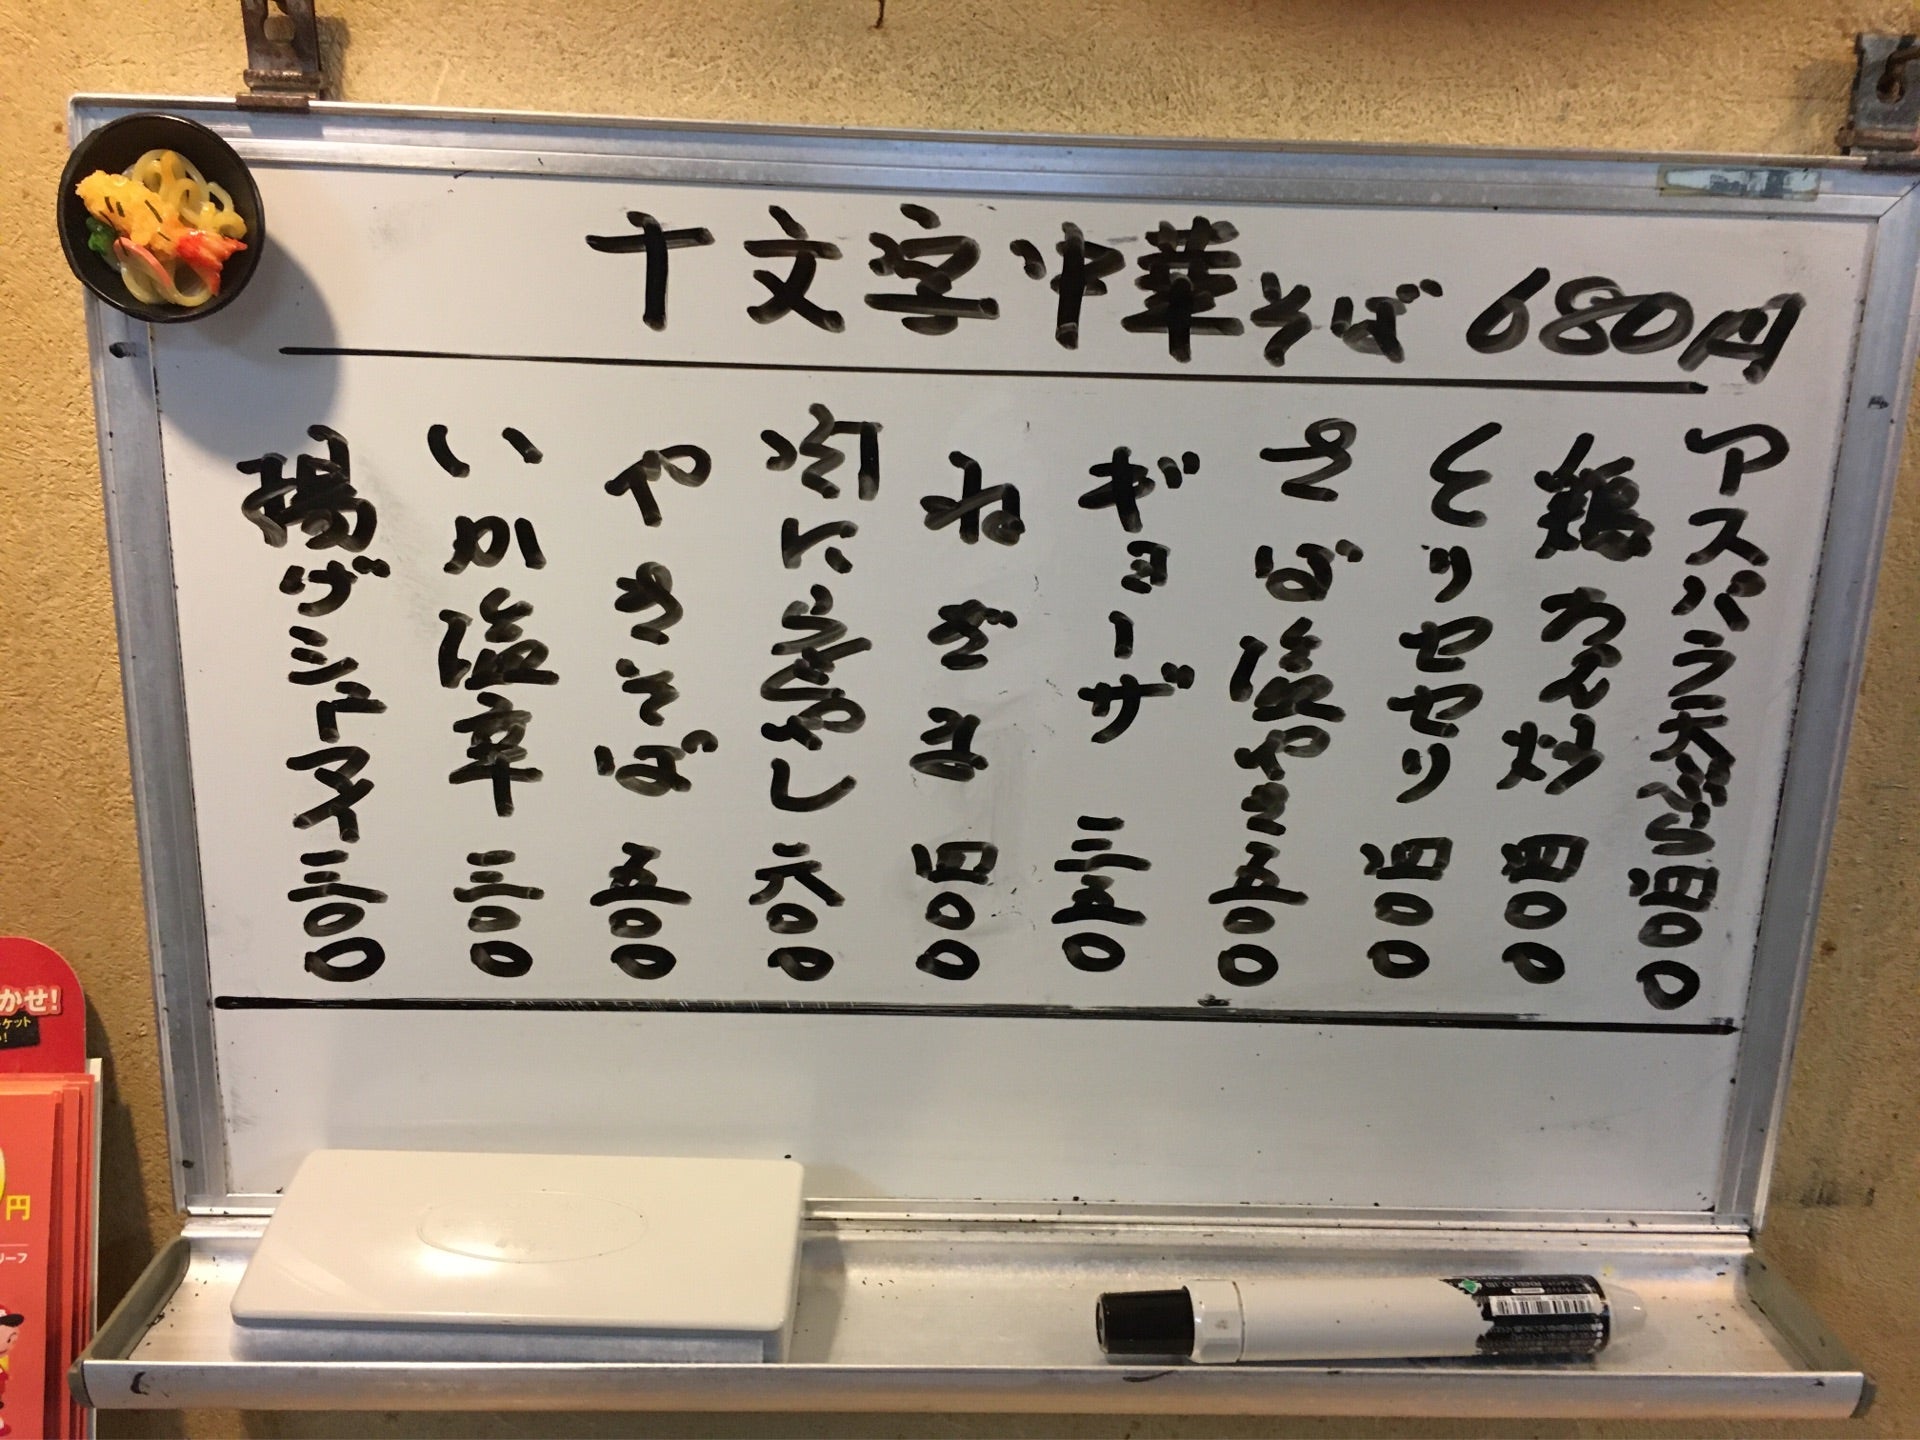 十文字中華そば 680円
アスパラ天ぷら 四〇〇
鶏カワ炒 四〇〇
とりセセリ 四〇〇
さば塩やき 五〇〇
ギョーザ 三五〇
ねぎま 四〇〇
肉にらもやし 六〇〇
やきそば 五〇〇
いか塩辛 三〇〇
揚げシューマイ 三〇〇
かせ!
ケット
円
リーフ